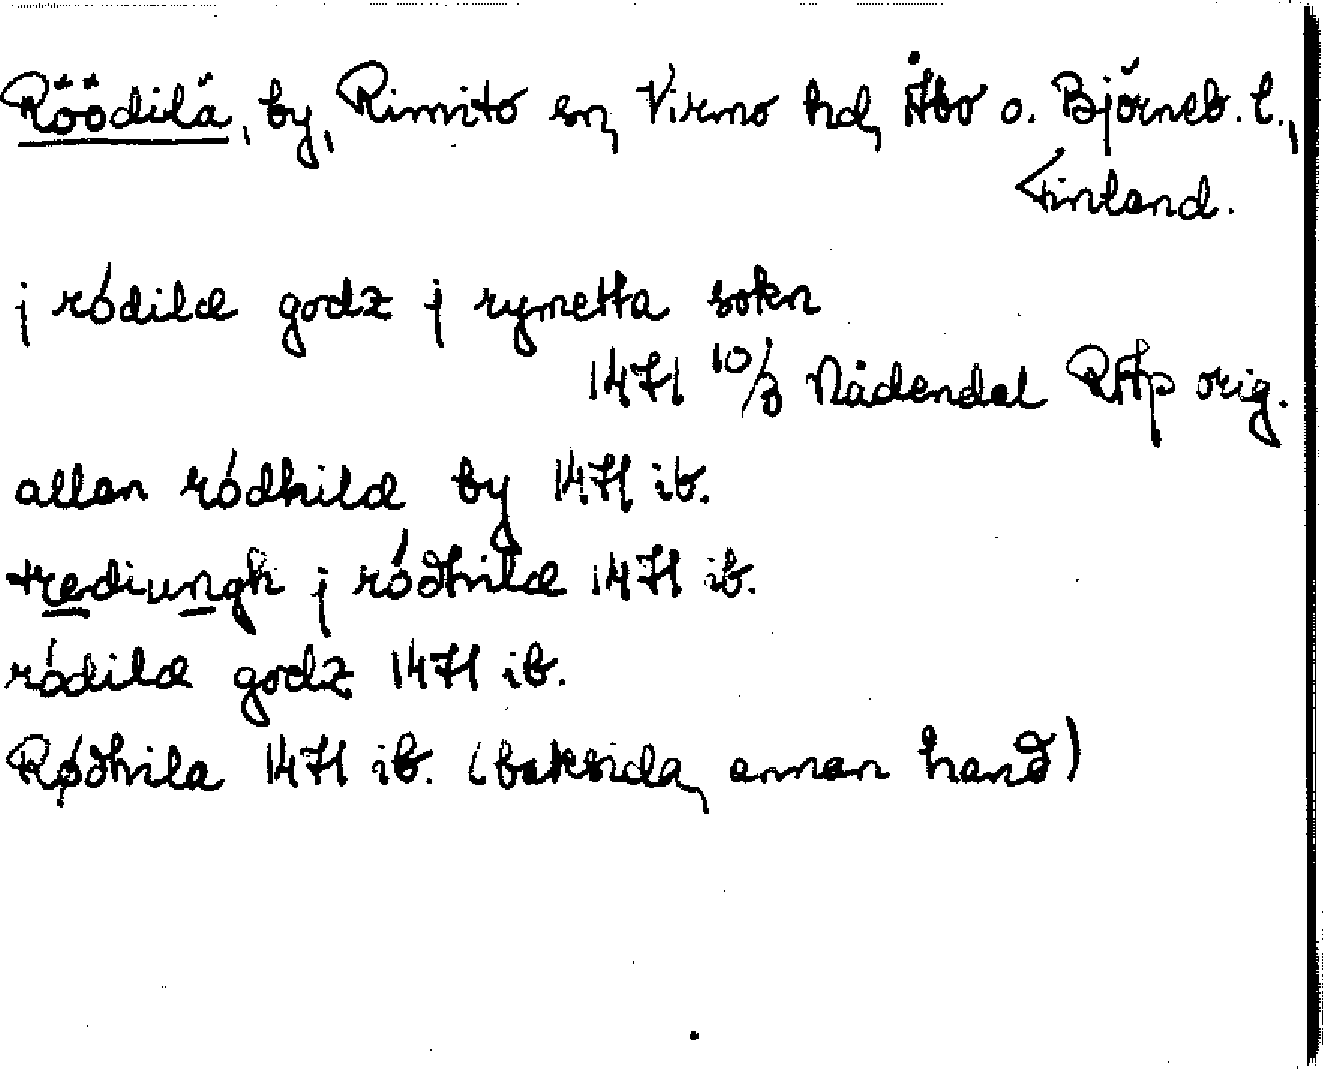 Röödilä, by, Rimito sn, Virmo hd, Åbo o. Björneb. l.,
Finland.
j ródilæ godz j rymetta sokn
1471 10/3 Nådendal RAp orig.
allan ródhilæ by 1471 ib.
trediungh jródhilæ 1471 ib.
ródilæ godz 1471 ib.
Rødhila 1471 ib. (baksida, annan hand)